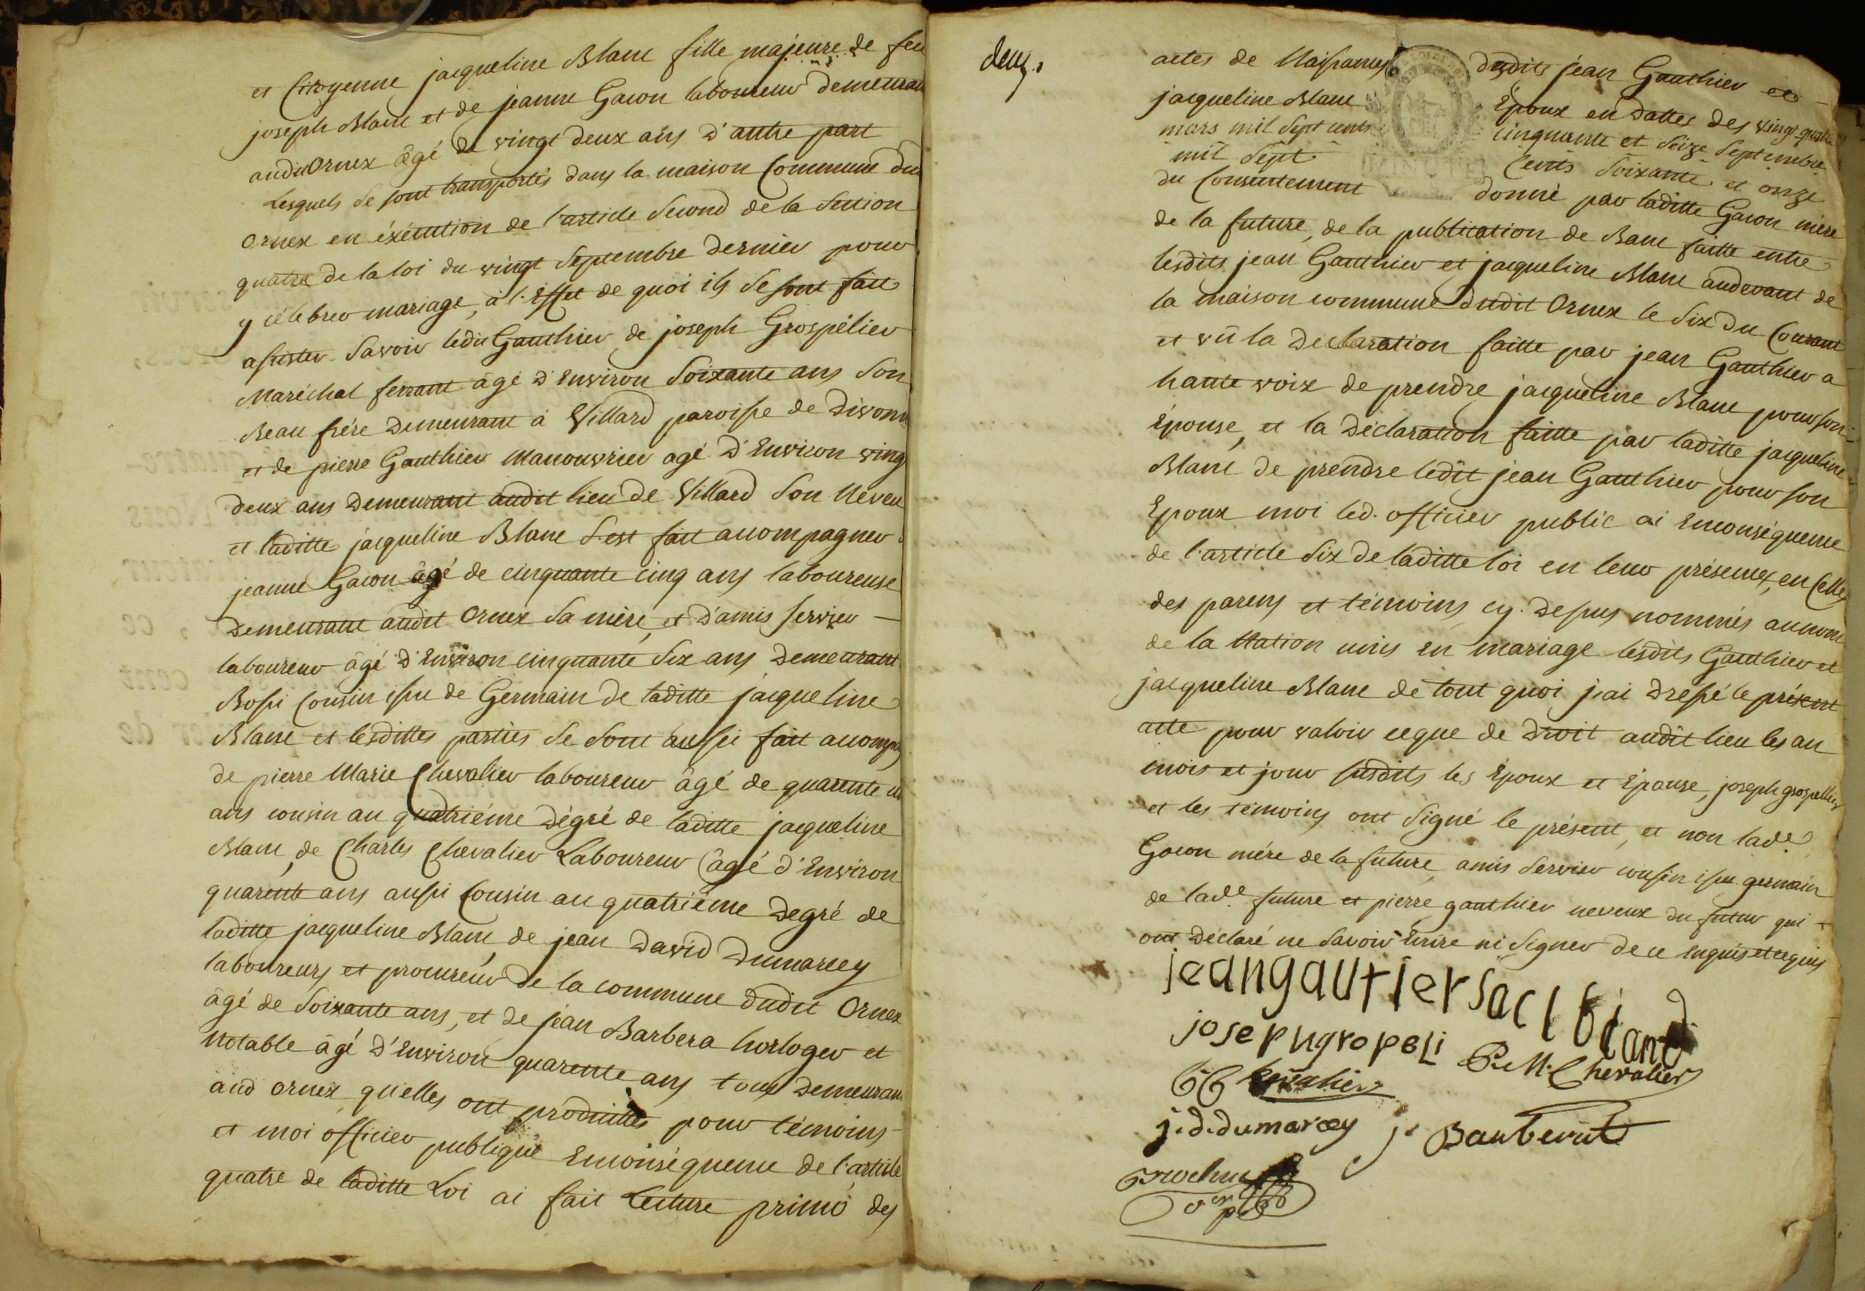 et Citoyenne jacqueline Blanc fille majeure de feu
joseph Blanc et de jeanne Gacon laboureur demeurant
audit Ornex âgé de vingt deux ans d'autre part
Lesquels se sont transportés dans la maison Commune dud
Ornex en éxécution de l'article Second de la Section
quatre de la loi du vingt Septembre dernier pour
y célébrer mariage, à l'Effet de quoi ils se sont fait
assister Savoir ledit Gauthier de joseph Grospélier
Maréchal ferrant âgé d'Environ Soixante ans Son
Beau frére demeurant à Villard paroisse de Divonne
et de pierre Gauthier Manouvrier agé d'Environ vingt
deux ans demeurant audit lieu de Villard Son Neveu
et laditte jacqueline Blanc s'est fait accompagner
jeanne Gacon âgé de cinquante cinq ans laboureuse
demeurant audit Ornex Sa mère, et d'amis Servier
laboureur âgé d'Environ cinquante Six ans demeurant
Bossi Cousin issu de Germain de laditte jacqueline
Blanc et lesdittes parties se sont aussi fait accomp
de pierre Marie Chevalier laboureur âgé de quarente
ans cousin au quatriéme dégré de laditte jacqueline
Blanc, de Charles Chevalier Laboureur âgé d'Environ
quarente ans aussi Cousin au quatriéme degré de
laditte jacqueline Blanc, de jean David Dumarcey
laboureurs et procureur de la commune dudit Ornex
âgé de Soixante ans, et de jean Barbera horloger et
Notable âgé d'Environ quarente ans tous demeurant
aud Ornex qu'elles ont produittes pour témoins
et moi officier publique Enconséquence de l'article
quatre de laditte Loi ai fait Lecture primo des
deux.
actes de Naissances dudits jean Gauthier et
jacqueline Blanc Époux en dattes des vingt quatre
mars mil Sept cents cinquante et Seize Septembre
mil Sept Cents Soixante et onze
du Consentement donné par laditte Gacon mère
de la future, de la publication de Banc faitte entre
lesdits jean Gauthier et jacqueline Blanc audevant de
la maison commune dudit Ornex le Six du Courant
et vû la Declaration faitte par jean Gauthier a
haute voix de prendre jacqueline Blanc pour son
Épouse, et la Déclaration faitte par laditte jacqueline
Blanc de prendre ledit jean Gauthier pour son
Epoux moi led. officier public ai Enconséquence
de l'article Six de laditte loi en leur présence, en Celle
des parens et témoins cy. dessus nommés au nom
de la Nation unis en mariage lesdits Gauthier et
jacqueline Blanc de tout quoi j'ai dressé le présent
acte pour valoir ceque de droit audit lieu les an
mois et jour susdits les Epoux et Epouse, joseph grospellier
et les témoins ont Signé le présent, et non lad.e
Gacon mére de la future, amis Servier cousin issu germain
de lad.e future et pierre gauthier neveux du futur qui
ont déclaré ne Savoir Ecrire ni Signer de ce enquis et requis
jeangautier jacl blanc
josepHgropeli P.M.Chevalier
Chevalier
j.d.dumarcey j. Barberat